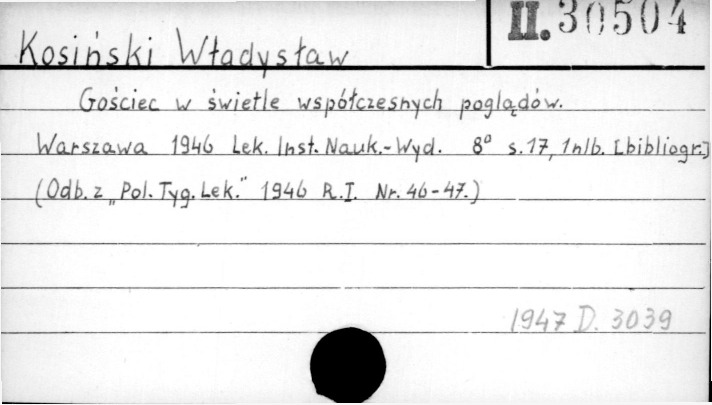 II. 30504
Kosiński Władysław
Gościec w świetle współczesnych poglądów.
Warszawa 1946 Lek. Inst. Nauk.-Wyd. 8° s. 17, 1 nlb. [bibliogr.]
(Odb. z „Pol. Tyg. Lek." 1946 R. I. Nr. 46-47.)
1947 D. 3039